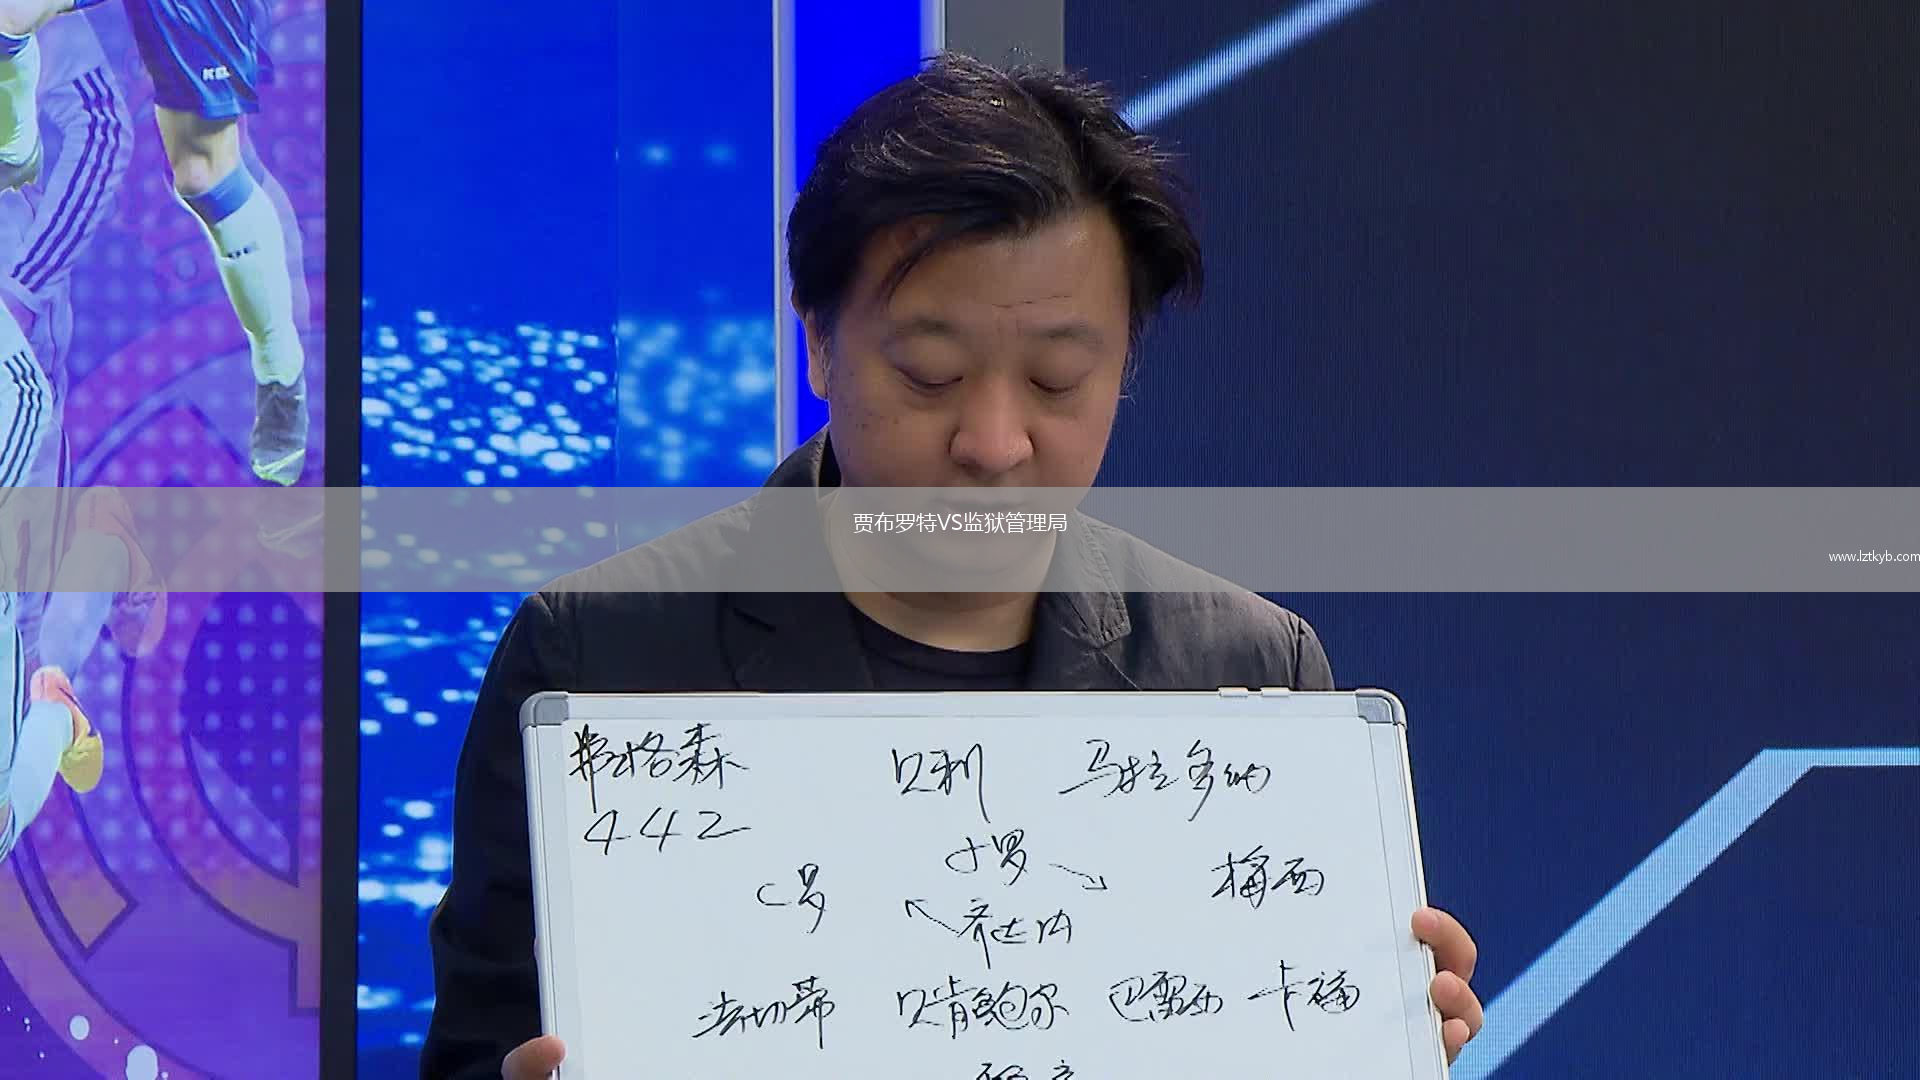 贾布罗特VS监狱管理局
www.lztkyb.com
弗格森 贝利 马拉多纳
442
小罗
C罗 梅西
齐达内
法切蒂 贝肯鲍尔 巴雷西 卡福